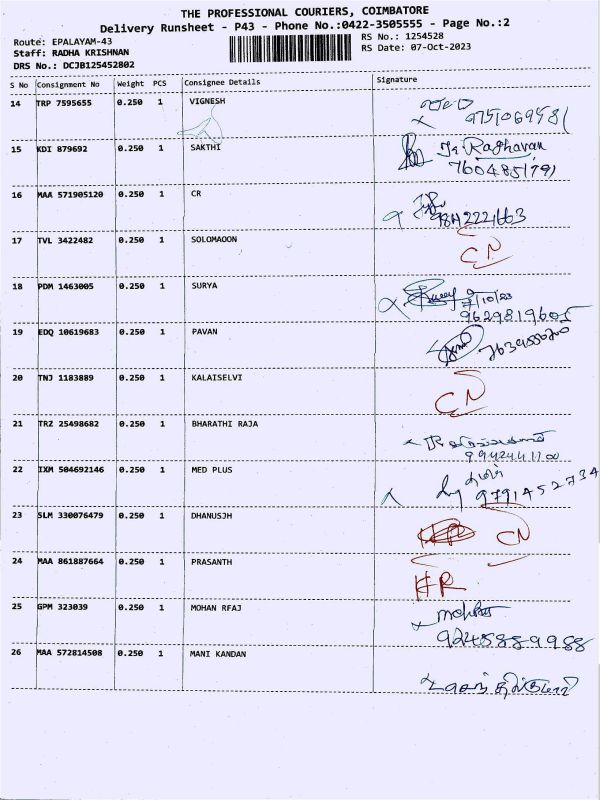 THE PROFESSIONAL COURIERS, COIMBATORE
Delivery Runsheet - P43 - Phone No.:0422-3505555 - Page No.:2
Route: EPALAYAM-43 RS No.: 1254528
Staff: RADHA KRISHNAN RS Date: 07-Oct-2023
DRS No.: DCJB125452802
S No Consignment No Weight PCS Consignee Details Signature
14 TRP 7595655 0.250 1 VIGNESH
15 KDI 879692 0.250 1 SAKTHI Raghavan
16 MAA 571905120 0.250 1 CR
17 TVL 3422482 0.250 1 SOLOMAOON CN
18 PDM 1463005 0.250 1 SURYA 7/10/23
9629819605
19 EDQ 10619683 0.250 1 PAVAN
20 TNJ 1183889 0.250 1 KALAISELVI CN
21 TRZ 25498682 0.250 1 BHARATHI RAJA
9942441100
22 IXM 504692146 0.250 1 MED PLUS
9791452734
23 SLM 330076479 0.250 1 DHANUSJH CN
24 MAA 861887664 0.250 1 PRASANTH
HR
25 GPM 323039 0.250 1 MOHAN RFAJ
26 MAA 572814508 0.250 1 MANI KANDAN